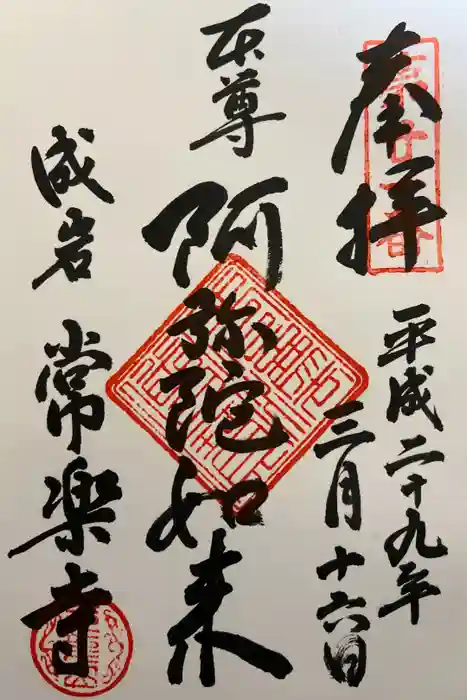 奉拝
平成二十九年
三月十六日
本尊
阿弥陀如来
成岩
常楽寺